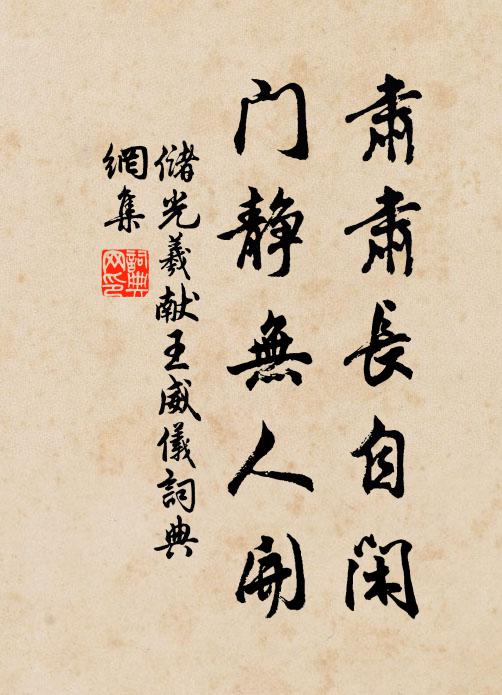 肅肅長自閑
門静無人開
儲光羲献王威儀詞典
網集
詞典
网印